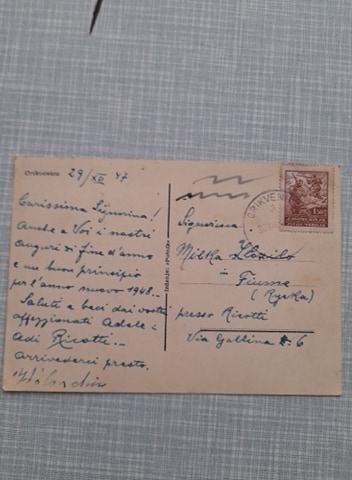 Crikvenica
29/XII 47
Carissima Signorina!
Anche a Voi i nostri
auguri di fine d'anno
e un buon principio
per l'anno nuovo 1948.-
Saluti e baci dai vostri
affezzionati Adele e
Adi Ricotti.-
Arrivederci presto.
CRIKVENI
Signorina
Milka
in
Fiume
(Rijeka)
presso Ricotti
Via Gallina 6